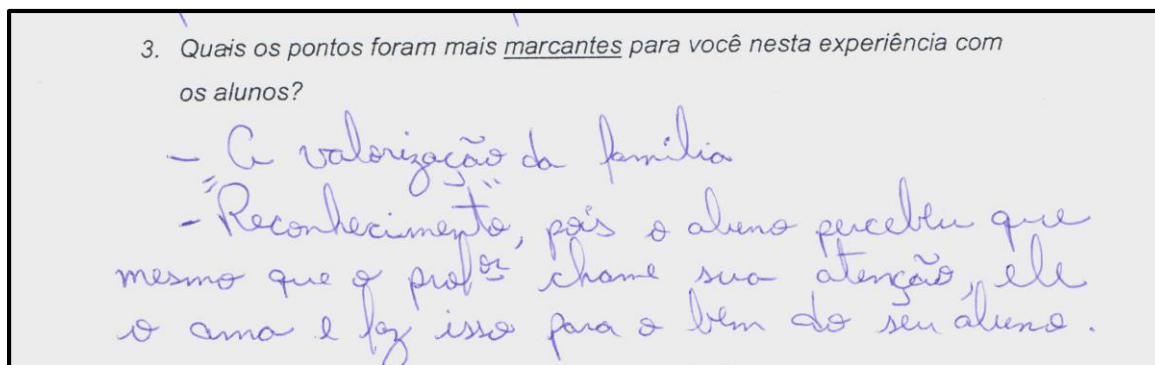 3. Quais os pontos foram mais marcantes para você nesta experiência com
os alunos?
- A valorização da família
- "Reconhecimento", pois o aluno percebeu que
mesmo que o profºr chame sua atenção, ele
o ama e faz isso para o bem do seu aluno.